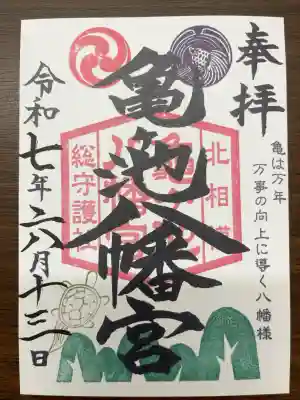 奉拝
亀は万年
万事の向上に導く八幡様
北相模
亀池八幡宮
総守護社
令和七年八月十三日